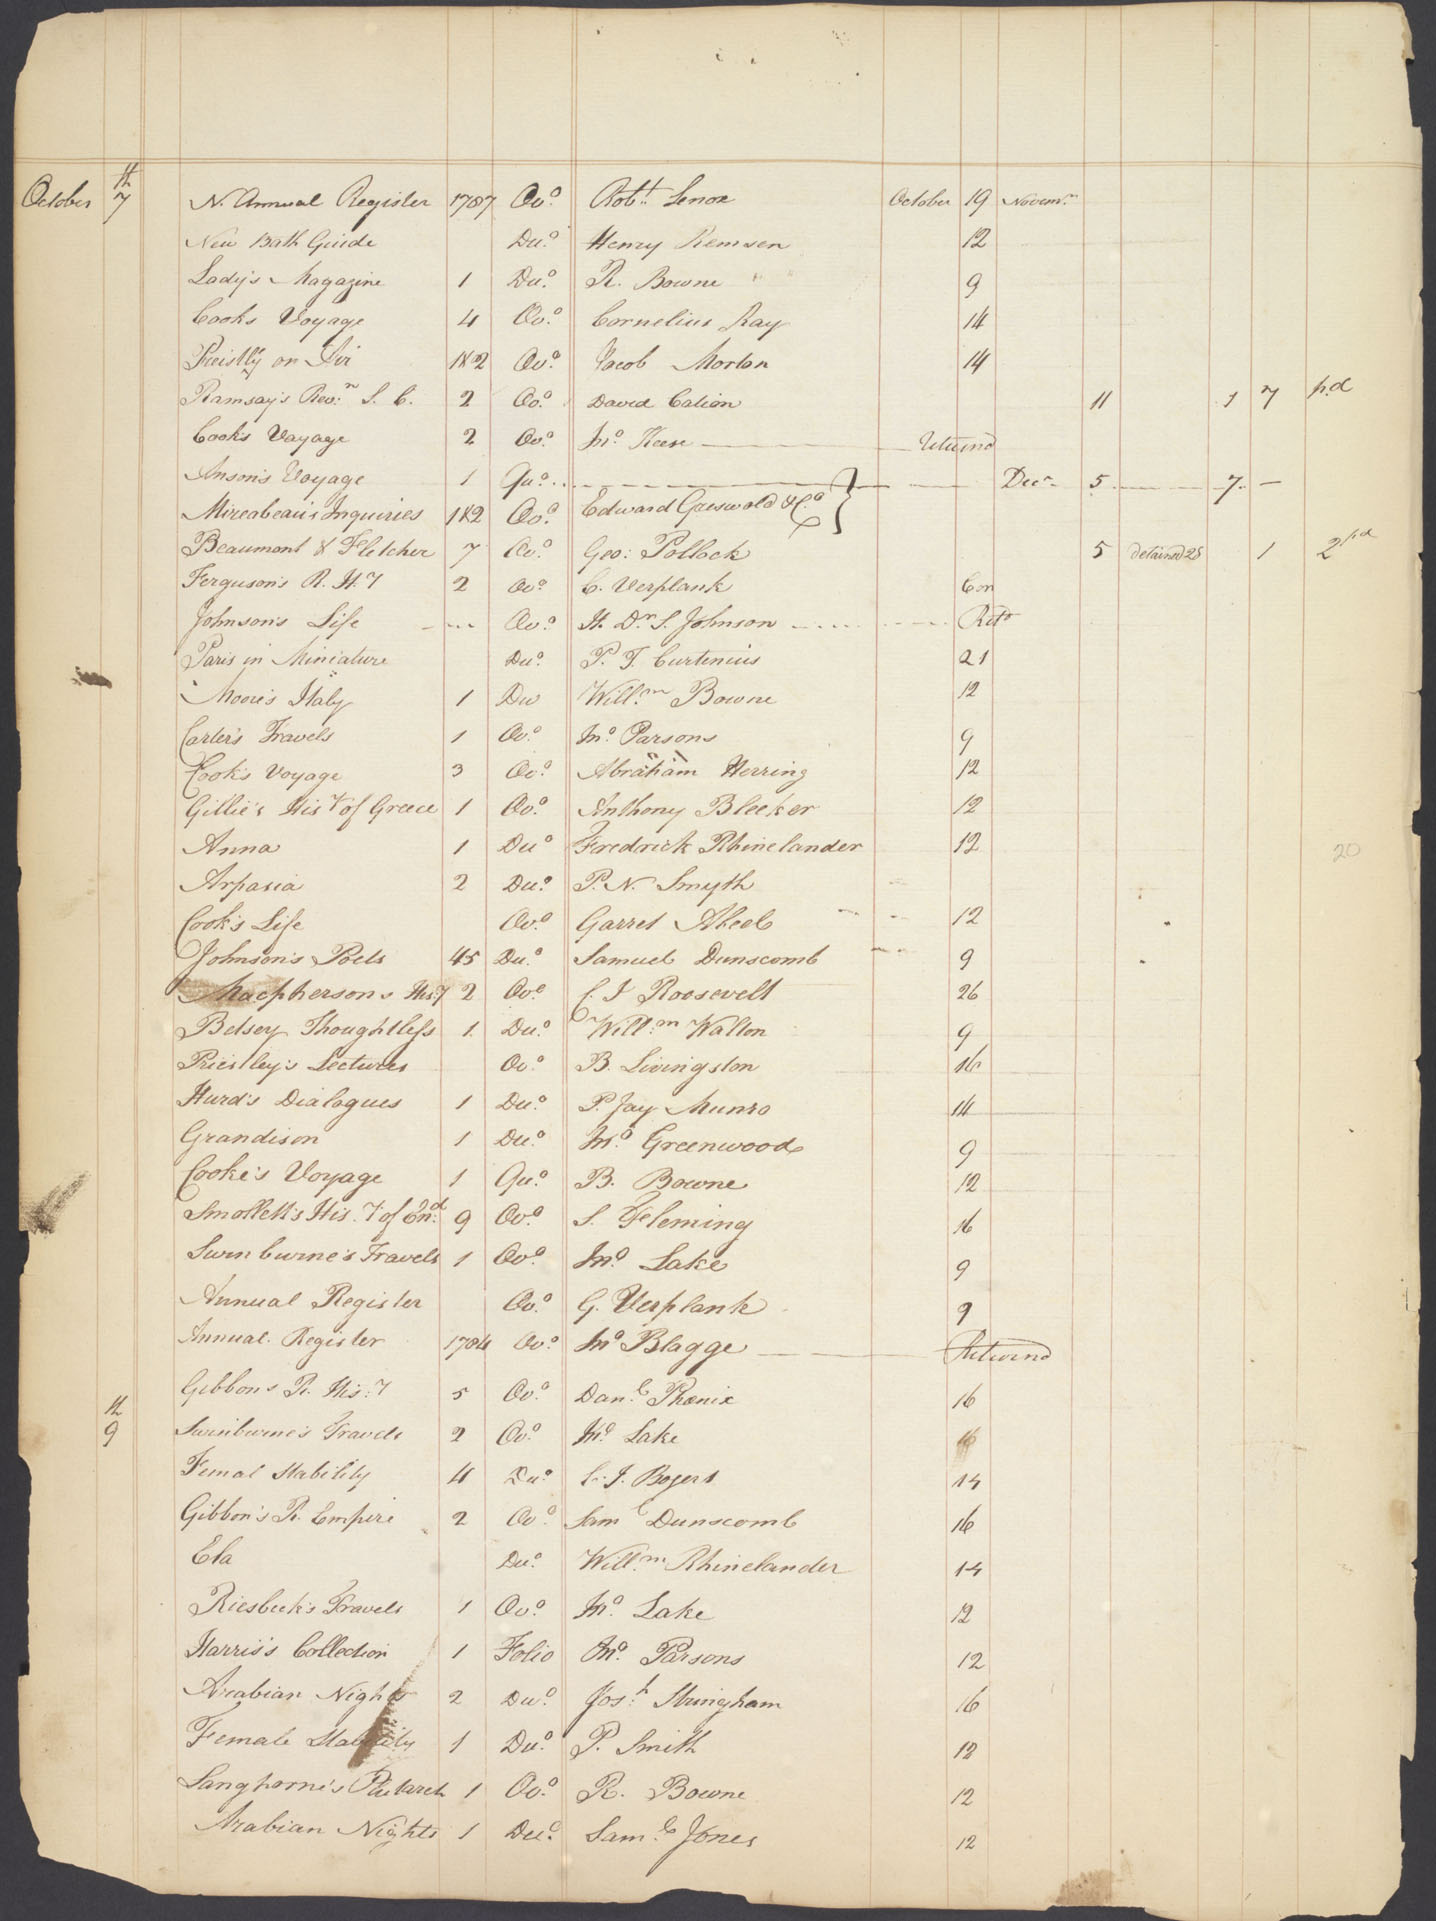 October 7th N. Annual Register 1787 Ovo. Robt. Lenox October 19 Novemr.
New Bath Guide Duo. Henry Remsen 12
Lady's Magazine 1 Duo. R. Bowne 9
Cooks Voyage 4 Ovo. Cornelius Ray 14
Preistly on Air 1&2 Ovo. Jacob Morton 14
Ramsay's Revn. S. C. 2 Ovo. David Cation 11 1 7 pd
Cooks Voyage 2 Ovo. Jno. Keese Returnd
Anson's Voyage 1 Quo. Decr. 5 7 –
Mireabeau's Inquiries 1&2 Ovo. Edward Greswold & Co. }
Beaumont & Fletcher 7 Ovo. Geo: Pollock 5 detained 28 1 2 pd
Ferguson's R. H.y 2 Ovo C. Verplank Con
Johnson's Life Ovo. H. Dr. S. Johnson Retd
Paris in Miniature Duo. P. T. Curtenius 21
Moore's Italy 1 Duo Willm. Bowne 12
Carter's Travels 1 Ovo. Jno. Parsons 9
Cook's Voyage 3 Ovo. Abraham Herring 12
Gillie's Hisy of Greece 1 Ovo. Anthony Bleeker 12
Anna 1 Duo Fredrick Rhinelander 12
Aspasia 2 Duo. P. N. Smyth
Cook's Life Ovo. Garret Abeel 12
Johnson's Poets 45 Duo. Samuel Dunscomb 9
Macphersons His:y 2 Ovo. C. I Roosevelt 26
Betsey Thoughtless 1 Duo. Willm. Walton 9
Priestley's Lectures Ovo. B. Livingston 16
Hurd's Dialogues 1 Duo. P. Jay Munro 14
Grandison 1 Duo. Jno. Greenwood 9
Cooke's Voyage 1 Quo. B. Bowne 12
Smollett's His.y of End. 9 Ovo. S. Fleming 16
Swinburne's Travels 1 Ovo. Jno. Lake 9
Annual Register Ovo. G. Verplank 9
Annual Register 1784 Ovo. Jno Blagge Returnd
Gibbons R. His:y 5 Ovo. Danl. Phœnix 16
9th Swinburne's Travels 2 Ovo. Jno. Lake 16
Femal Stability 4 Duo. C. J. Bogert 14
Gibbon's R. Empire 2 Ovo. Saml Dunscomb 16
Ela Duo. Willm. Rhinelander 14
Riesbeck's Travels 1 Ovo. Jno. Lake 12
Harris's Collection 1 Folio Jno. Parsons 12
Arabian Nights 2 Duo. Josh. Stringham 16
Female Stability 1 Duo. P. Smith 12
Langhorne's Plutarch 1 Ovo. R. Bowne 12
Arabian Nights 1 Duo. Saml. Jones 12
20